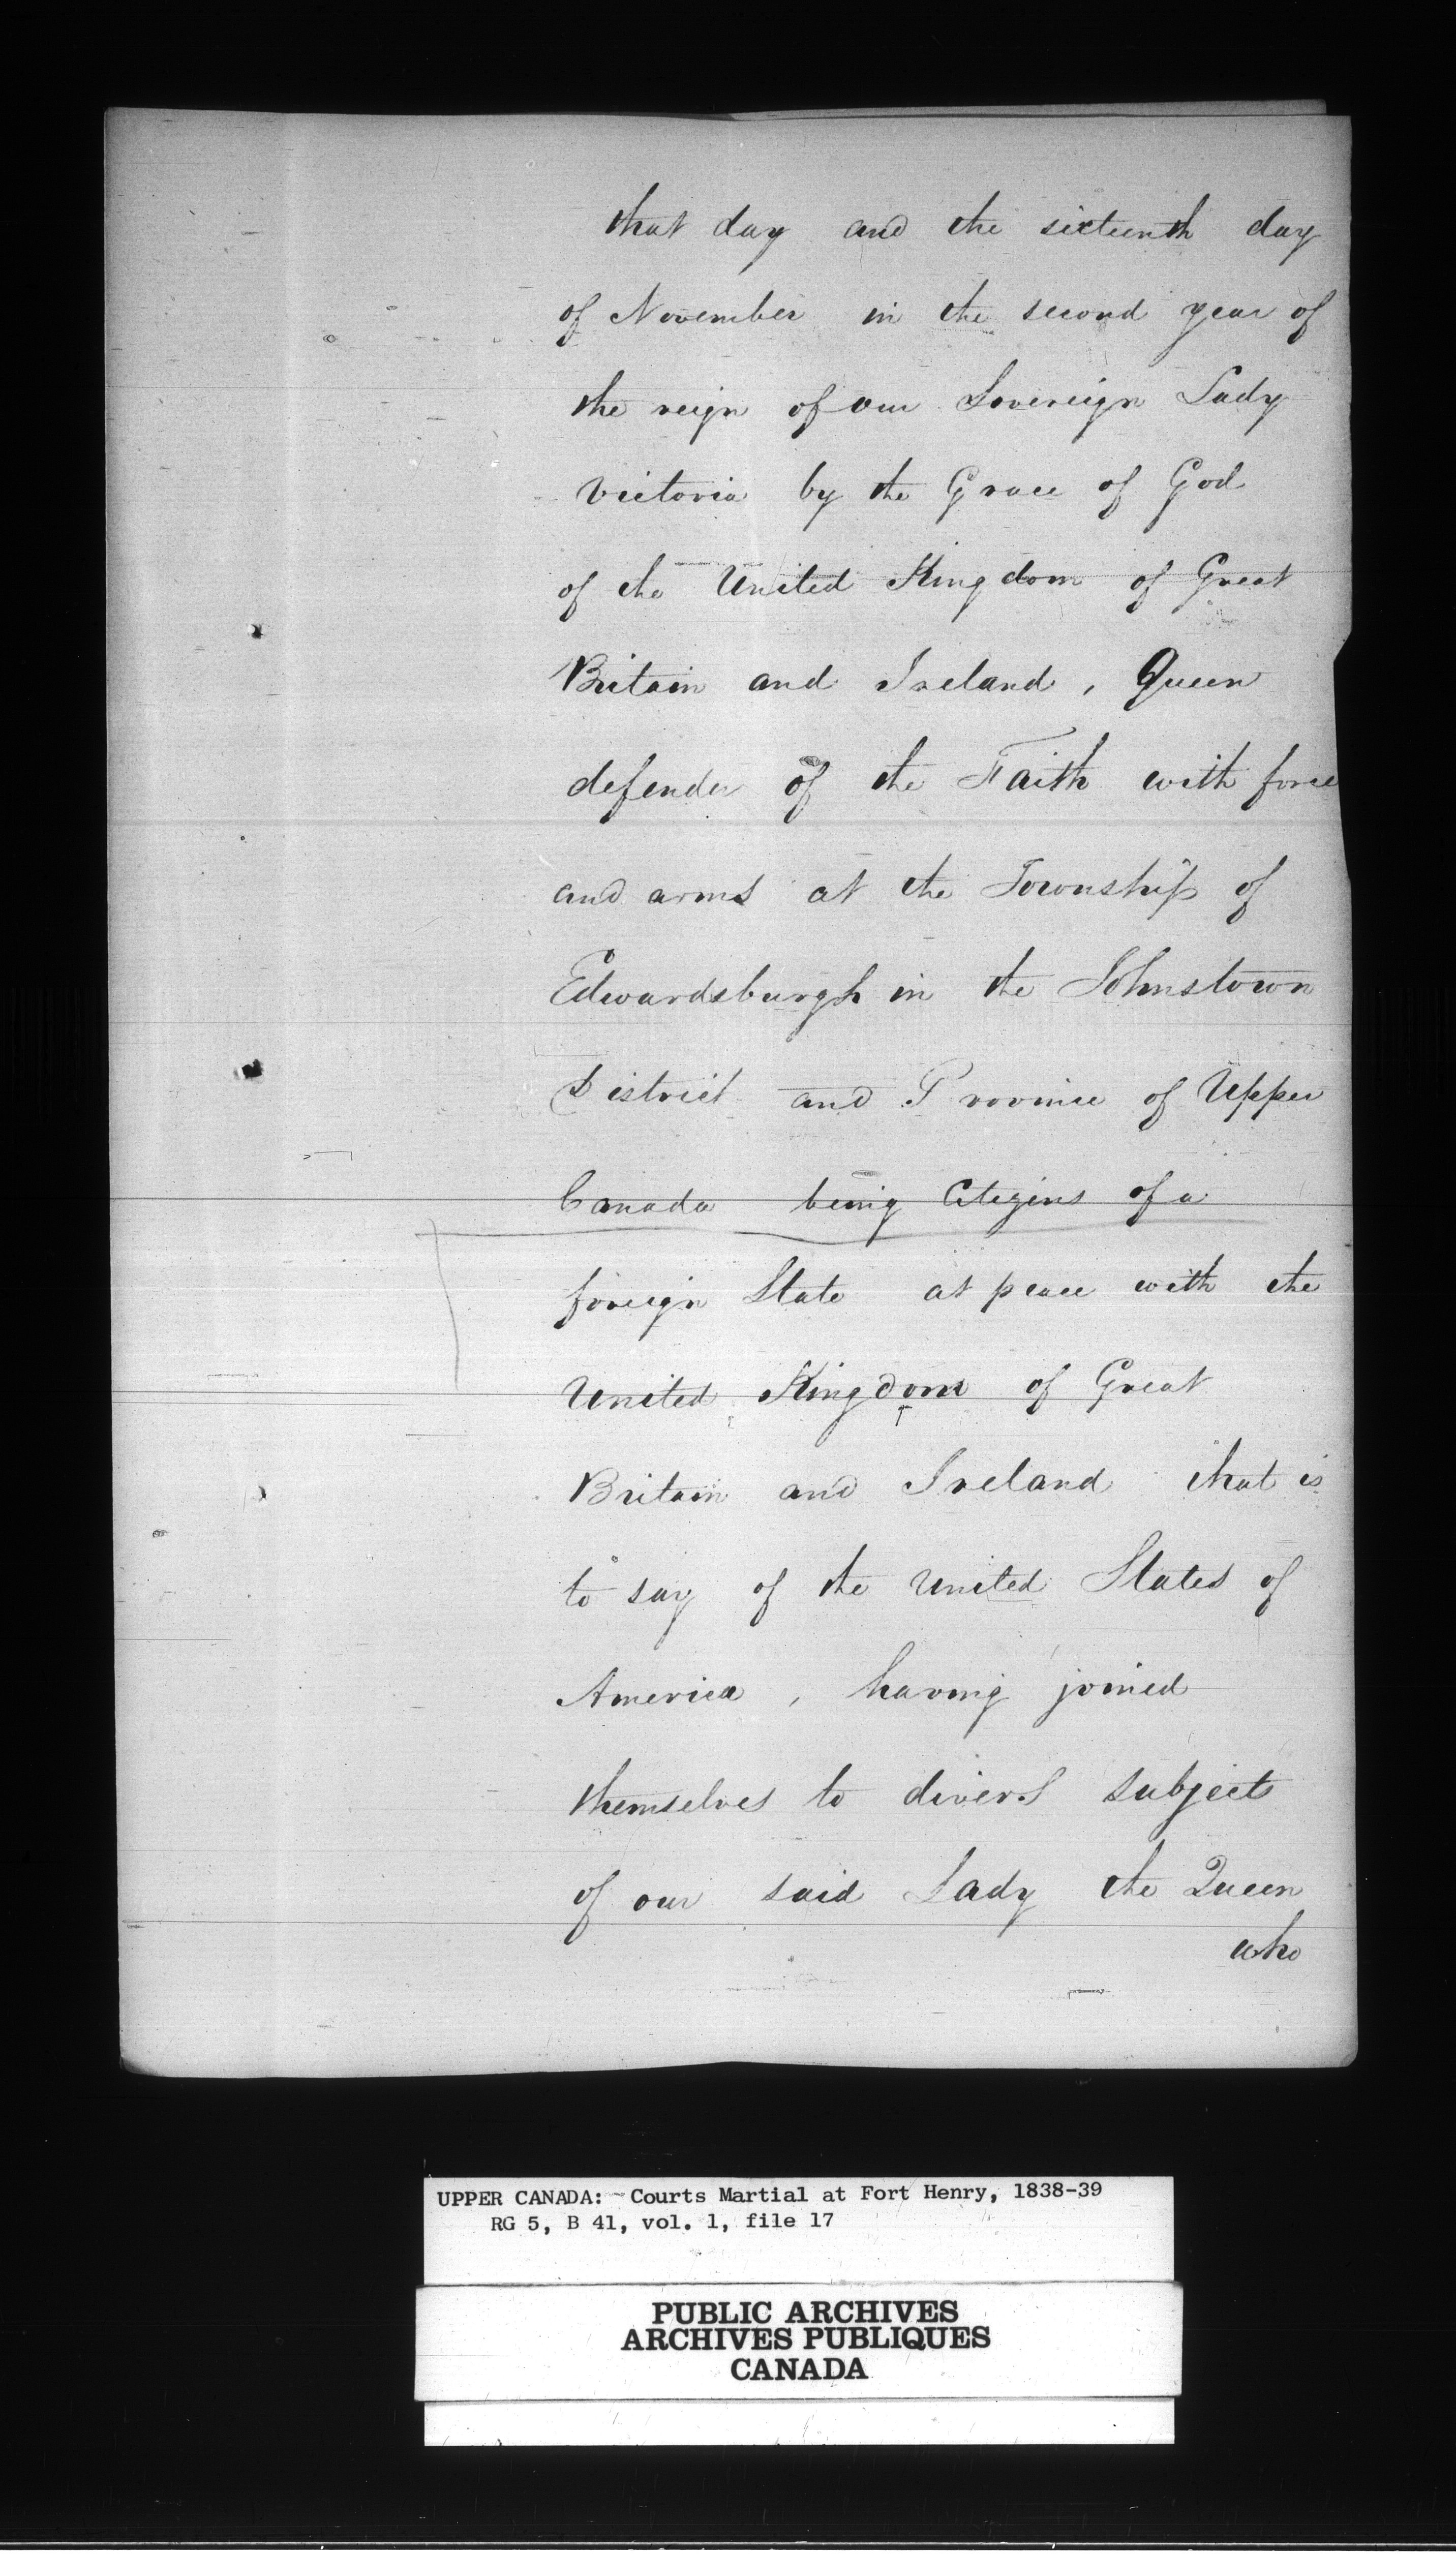 that day and the sixteenth day
of November in the second year of
the reign of our Sovereign Lady
Victoria by the Grace of God
of the United Kingdom of Great
Britain and Ireland, Queen
defender of the Faith with force
and arms at the Township of
Edwardsburgh in the Johnstown
District and Province of Upper
Canada being Citizens of a
foreign State at peace with the
United Kingdom of Great
Britain and Ireland that is
to say of the United States of
America, having joined
themselves to divers subjects
of our said Lady the Queen
who
UPPER CANADA: Courts Martial at Fort Henry, 1838-39
RG 5, B 41, vol. 1, file 17
PUBLIC ARCHIVES
ARCHIVES PUBLIQUES
CANADA